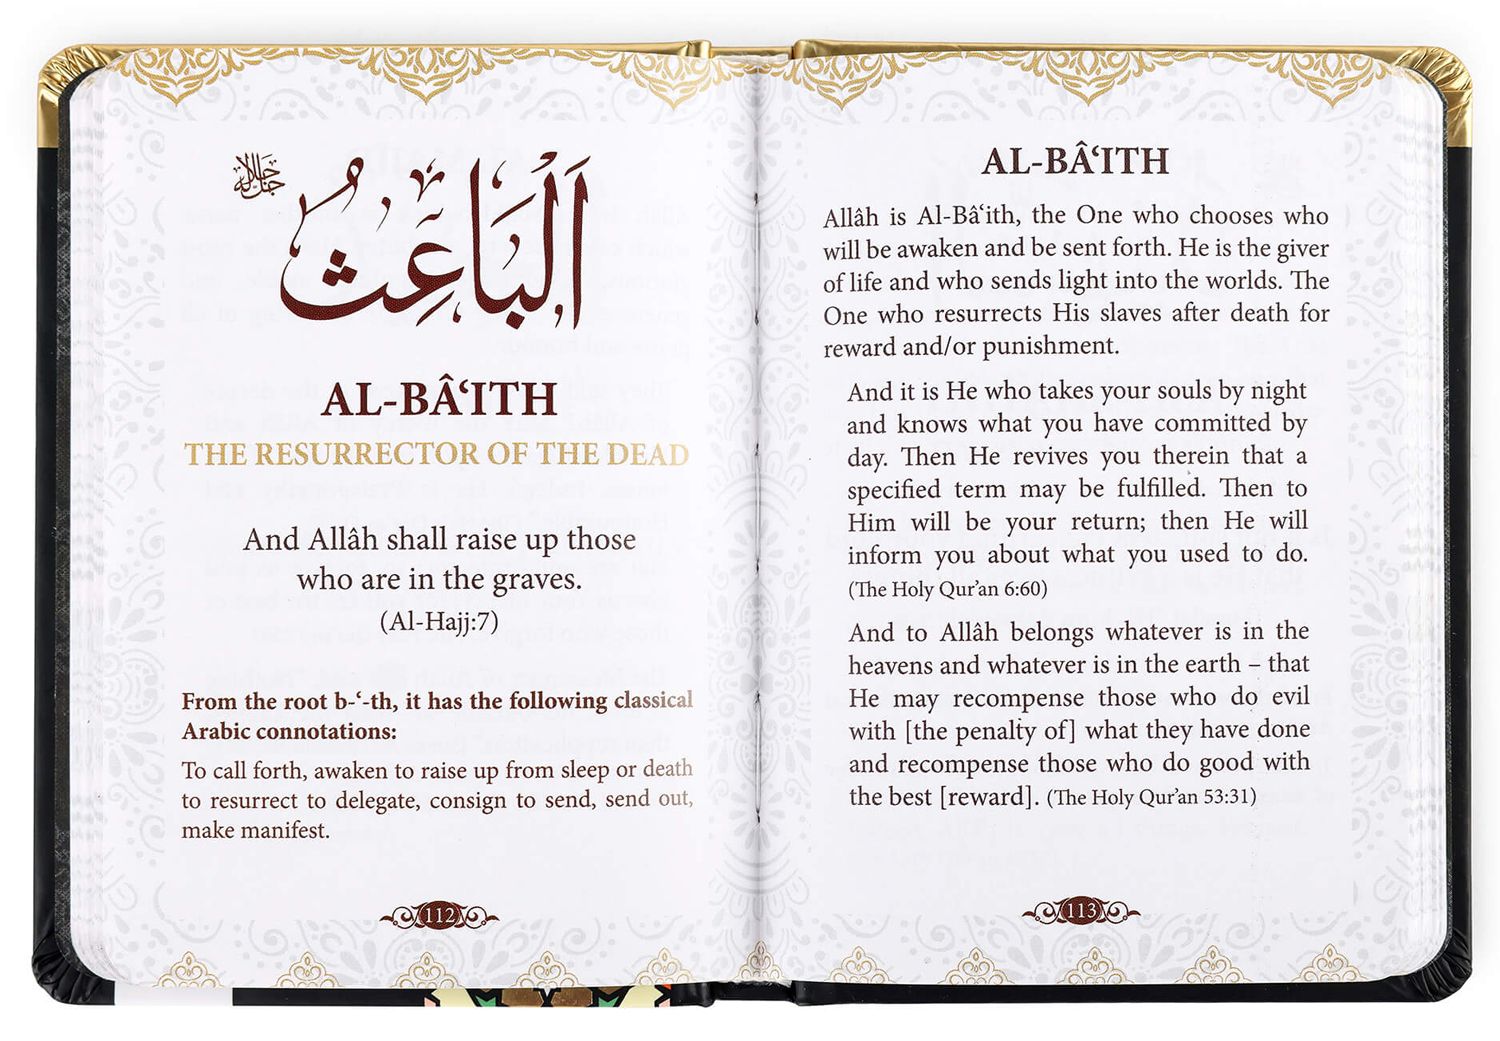 جل جلاله
الْبَاعِثُ
AL-BÂ‘ITH
THE RESURRECTOR OF THE DEAD
And Allâh shall raise up those
who are in the graves.
(Al-Hajj:7)
From the root b-‘-th, it has the following classical
Arabic connotations:
To call forth, awaken to raise up from sleep or death
to resurrect to delegate, consign to send, send out,
make manifest.
112
AL-BÂ‘ITH
Allâh is Al-Bâ‘ith, the One who chooses who
will be awaken and be sent forth. He is the giver
of life and who sends light into the worlds. The
One who resurrects His slaves after death for
reward and/or punishment.
And it is He who takes your souls by night
and knows what you have committed by
day. Then He revives you therein that a
specified term may be fulfilled. Then to
Him will be your return; then He will
inform you about what you used to do.
(The Holy Qur’an 6:60)
And to Allâh belongs whatever is in the
heavens and whatever is in the earth – that
He may recompense those who do evil
with [the penalty of] what they have done
and recompense those who do good with
the best [reward]. (The Holy Qur’an 53:31)
113